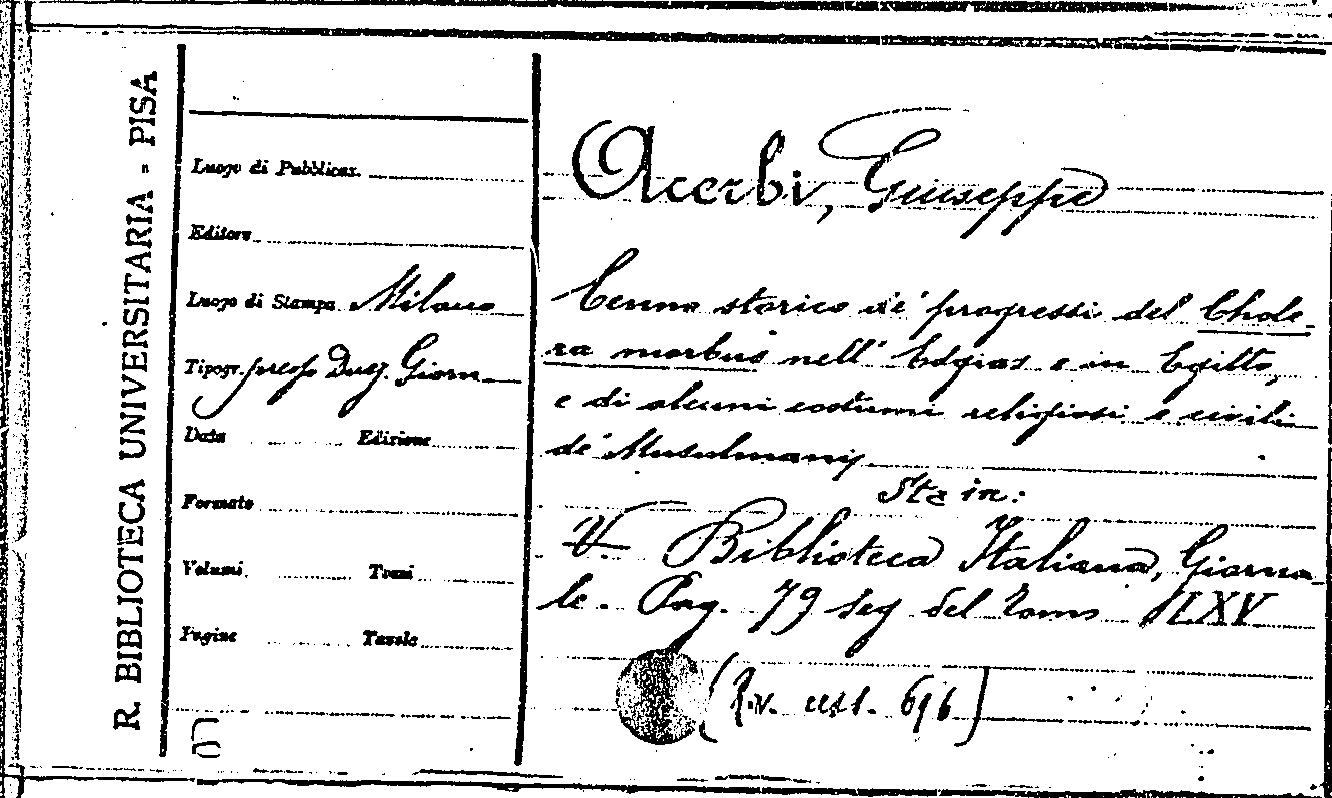 R. BIBLIOTECA UNIVERSITARIA - PISA
Luogo di Pubblicaz.
Editore
Luogo di Stampa Milano
Tipogr. presso Direz. Giorn.
Data Edizione
Formato
Volumi Tomi
Pagine Tavole
Acerbi, Giuseppe
Cenno storico de' progressi del Chole-
ra morbus nell' Edgias e in Egitto,
e di alcuni costumi religiosi e civili
de' Musulmani
Sta in:
V. Biblioteca Italiana, Giorna-
le. Pag. 79 seg del Tomo LXV